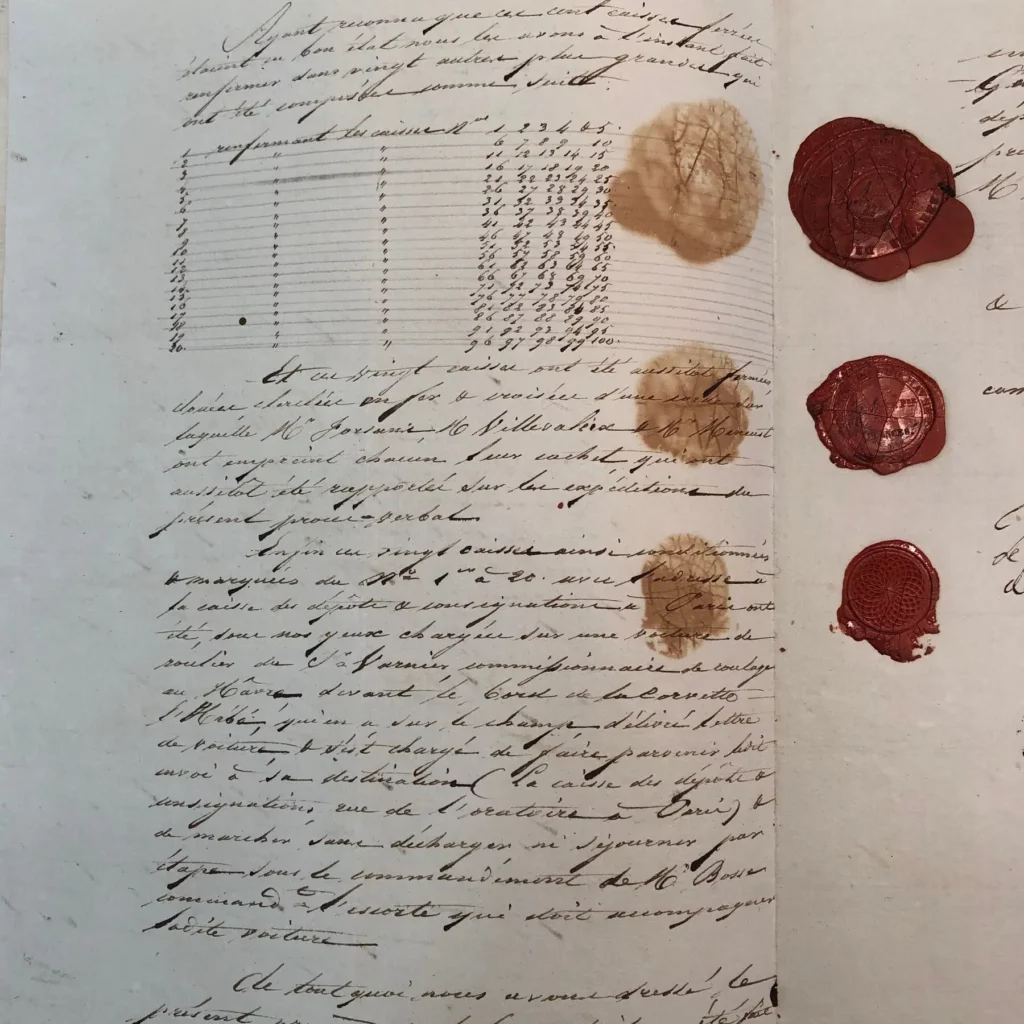 Ayant reconnu que ces cent caisses ferrées
étaient en bon état nous les avons à l'instant fait
renfermer dans vingt autres plus grandes qui
ont été composées comme suit.
1 renfermant les caisses Nos 1, 2 3 4 & 5.
2 " " 6 7 8 9 10
3 " " 11 12 13 14 15
4 " " 16 17 18 19 20
5 " " 21 22 23 24 25
6 " " 26 27 28 29 30
7 " " 31 32 33 34 35
8 " " 36 37 38 39 40
9 " " 41 42 43 44 45
10 " " 46 47 48 49 50
11 " " 51 52 53 54 55
12 " " 56 57 58 59 60
13 " " 61 62 63 64 65
14 " " 66 67 68 69 70
15 " " 71 72 73 74 75
16 " " 76 77 78 79 80
17 " " 81 82 83 84 85
18 " " 86 87 88 89 90
19 " " 91 92 93 94 95
20. " " 96 97 98 99 100.
Et ces vingt caisses ont été aussitôt fermées
clouées en fer & croisées d'une corde sur
laquelle Mr M & Mr
ont empreint chacun leur cachet qui ont
aussitôt été rapportés sur les expéditions du
présent procès-verbal
Enfin ces vingt caisses ainsi conditionnées
& marquées du No 1er à 20. avec l'adresse à
la caisse des dépôts & consignations à Paris ont
été, sous nos yeux chargées sur une voiture de
roulier du Sr Varnier commissionnaire de roulage
au Hâvre devant le bord de la Corvette
l'Hébé, qui en a sur le champ délivré lettre
de voiture & s'est chargé de faire parvenir ledit
envoi à sa destination (La caisse des dépôts &
consignations rue de l'oratoire à Paris) &
de marcher sans décharger ni séjourner par
étape sous le commandement de Mr Bosse
command.t l'escorte qui doit accompagner
ladite voiture
De tout quoi nous avons dressé le
présent